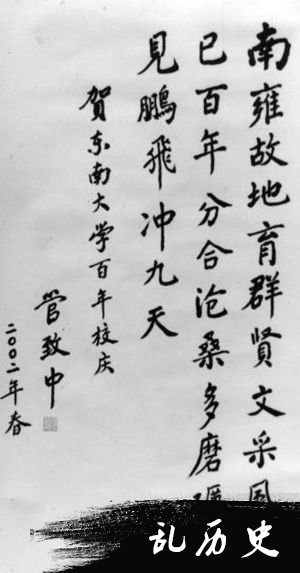 南雍故地育群贤文采风
已百年分合沧桑多磨
見鹏飛冲九天
贺东南大学百年校庆
管致中
二〇〇二年春
乱历史